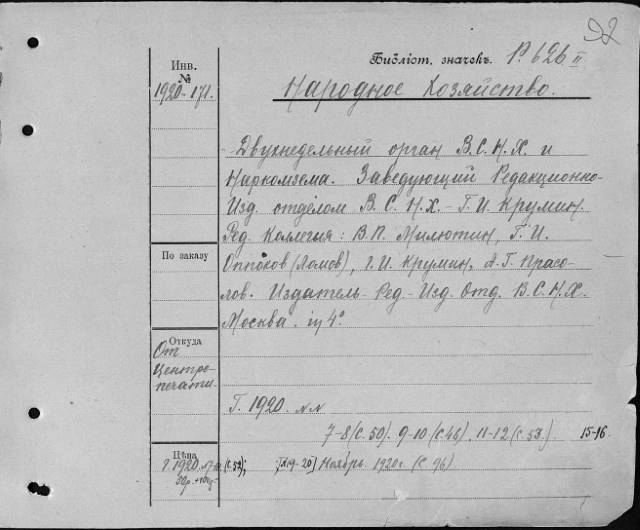 92
Библіот. значекъ. Р. 626 II
Инв.
№
1920-171.
Народное Хозяйство.
Двухнедельный орган В.С.Н.Х. и
Наркомзема. Заведующий Редакционно-
Изд. отделом В.С.Н.Х.- Г.И. Крумин.
Ред. Коллегия: В.П. Милютин, Г.И.
По заказу
Оппоков (Ломов), Г.И. Крумин, А.Г. Прасо-
лов. Издатель Ред.-Изд. Отд. В.С.Н.Х.
Москва. in 4°.
Откуда
От
Центро-
печати.
Г. 1920. №№
7-8 (с. 50). 9-10 (с. 46). 11-12 (с. 53). 15-16
Цѣна
Г. 1920. (с. 53); [№19-20] Ноябрь 1920г. (с. 96)